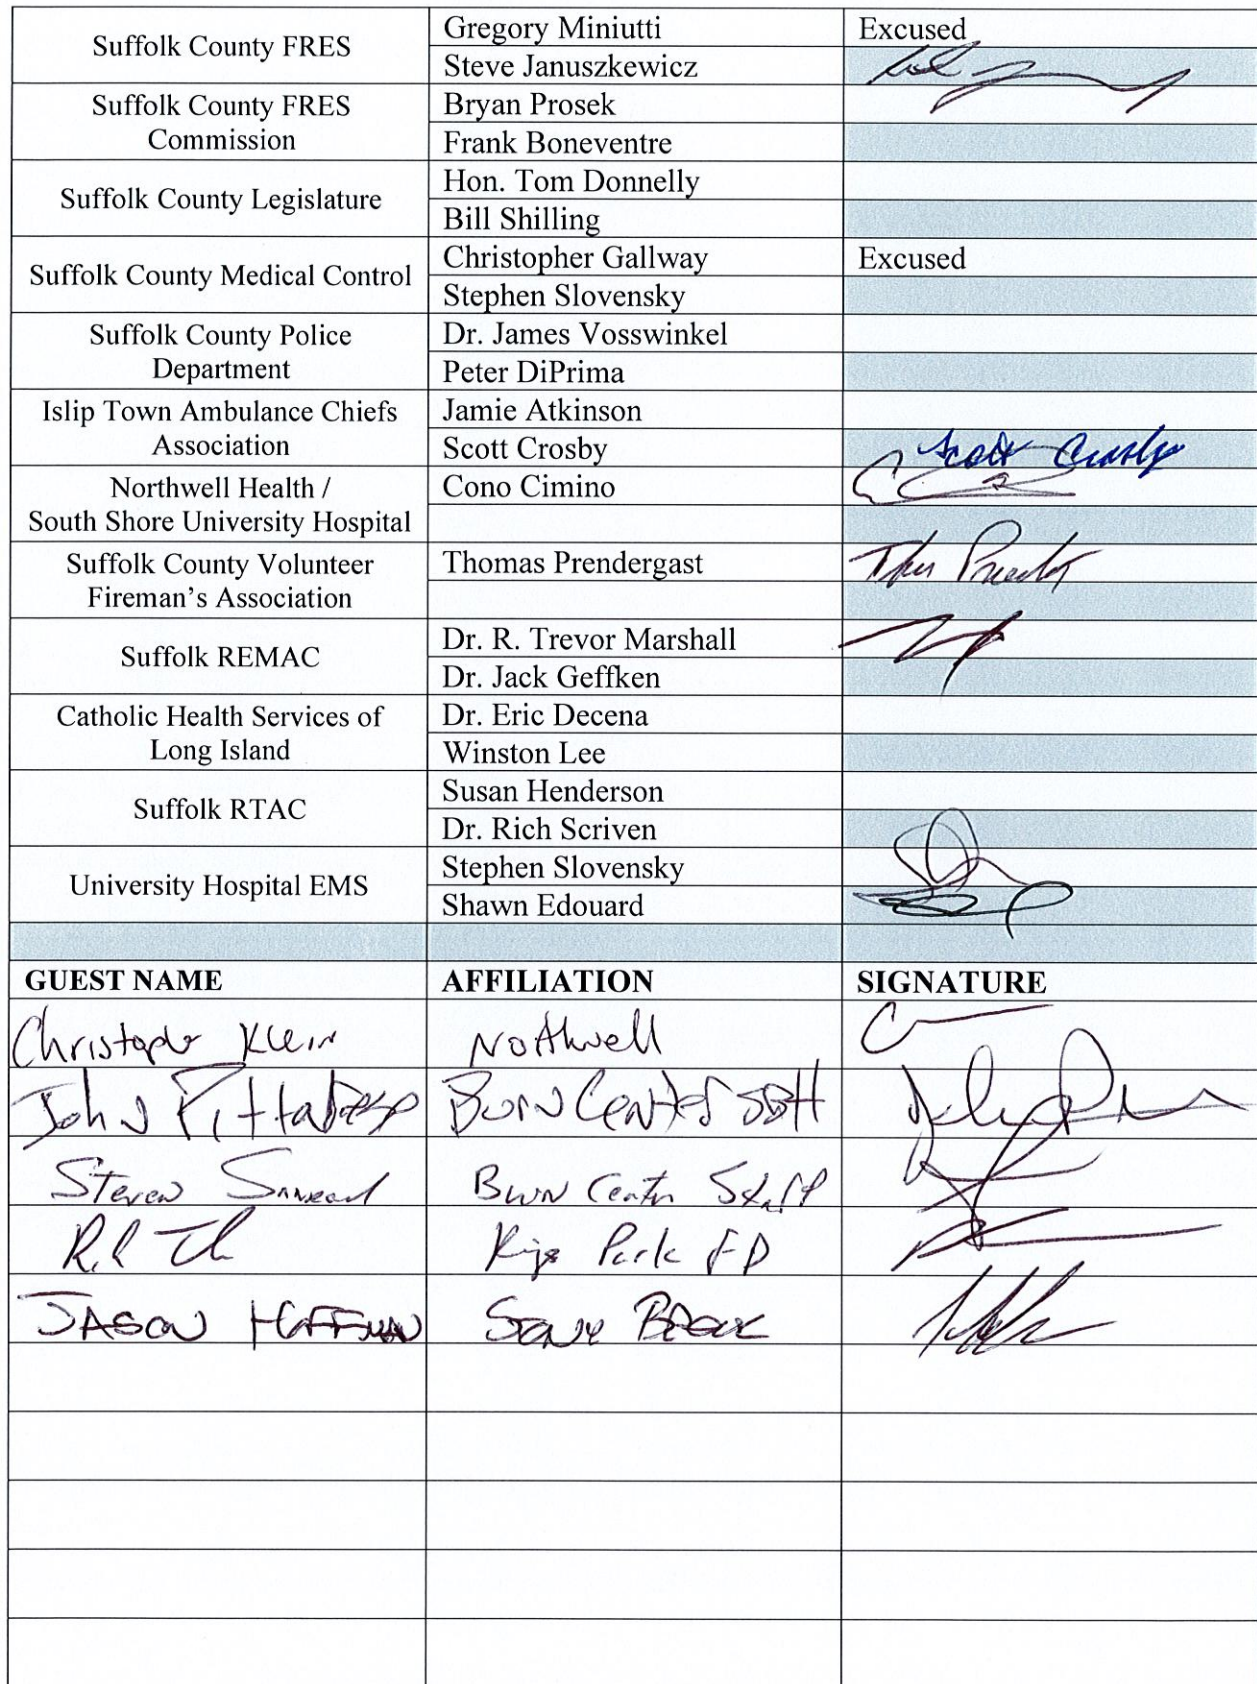 Suffolk County FRES
Gregory Miniutti
Excused
Steve Januszkewicz
Suffolk County FRES
Commission
Bryan Prosek
Frank Boneventre
Suffolk County Legislature
Hon. Tom Donnelly
Bill Shilling
Suffolk County Medical Control
Christopher Gallway
Excused
Stephen Slovensky
Suffolk County Police
Department
Dr. James Vosswinkel
Peter DiPrima
Islip Town Ambulance Chiefs
Association
Jamie Atkinson
Scott Crosby
Scott Crosby
Northwell Health /
South Shore University Hospital
Cono Cimino
Suffolk County Volunteer
Fireman's Association
Thomas Prendergast
Suffolk REMAC
Dr. R. Trevor Marshall
Dr. Jack Geffken
Catholic Health Services of
Long Island
Dr. Eric Decena
Winston Lee
Suffolk RTAC
Susan Henderson
Dr. Rich Scriven
University Hospital EMS
Stephen Slovensky
Shawn Edouard
GUEST NAME AFFILIATION SIGNATURE
Christopher Klein Northwell
John Burn Center SBH
Steven Burn Center Staff
Kings Park FD
JASON HOFFMAN STONY BROOK